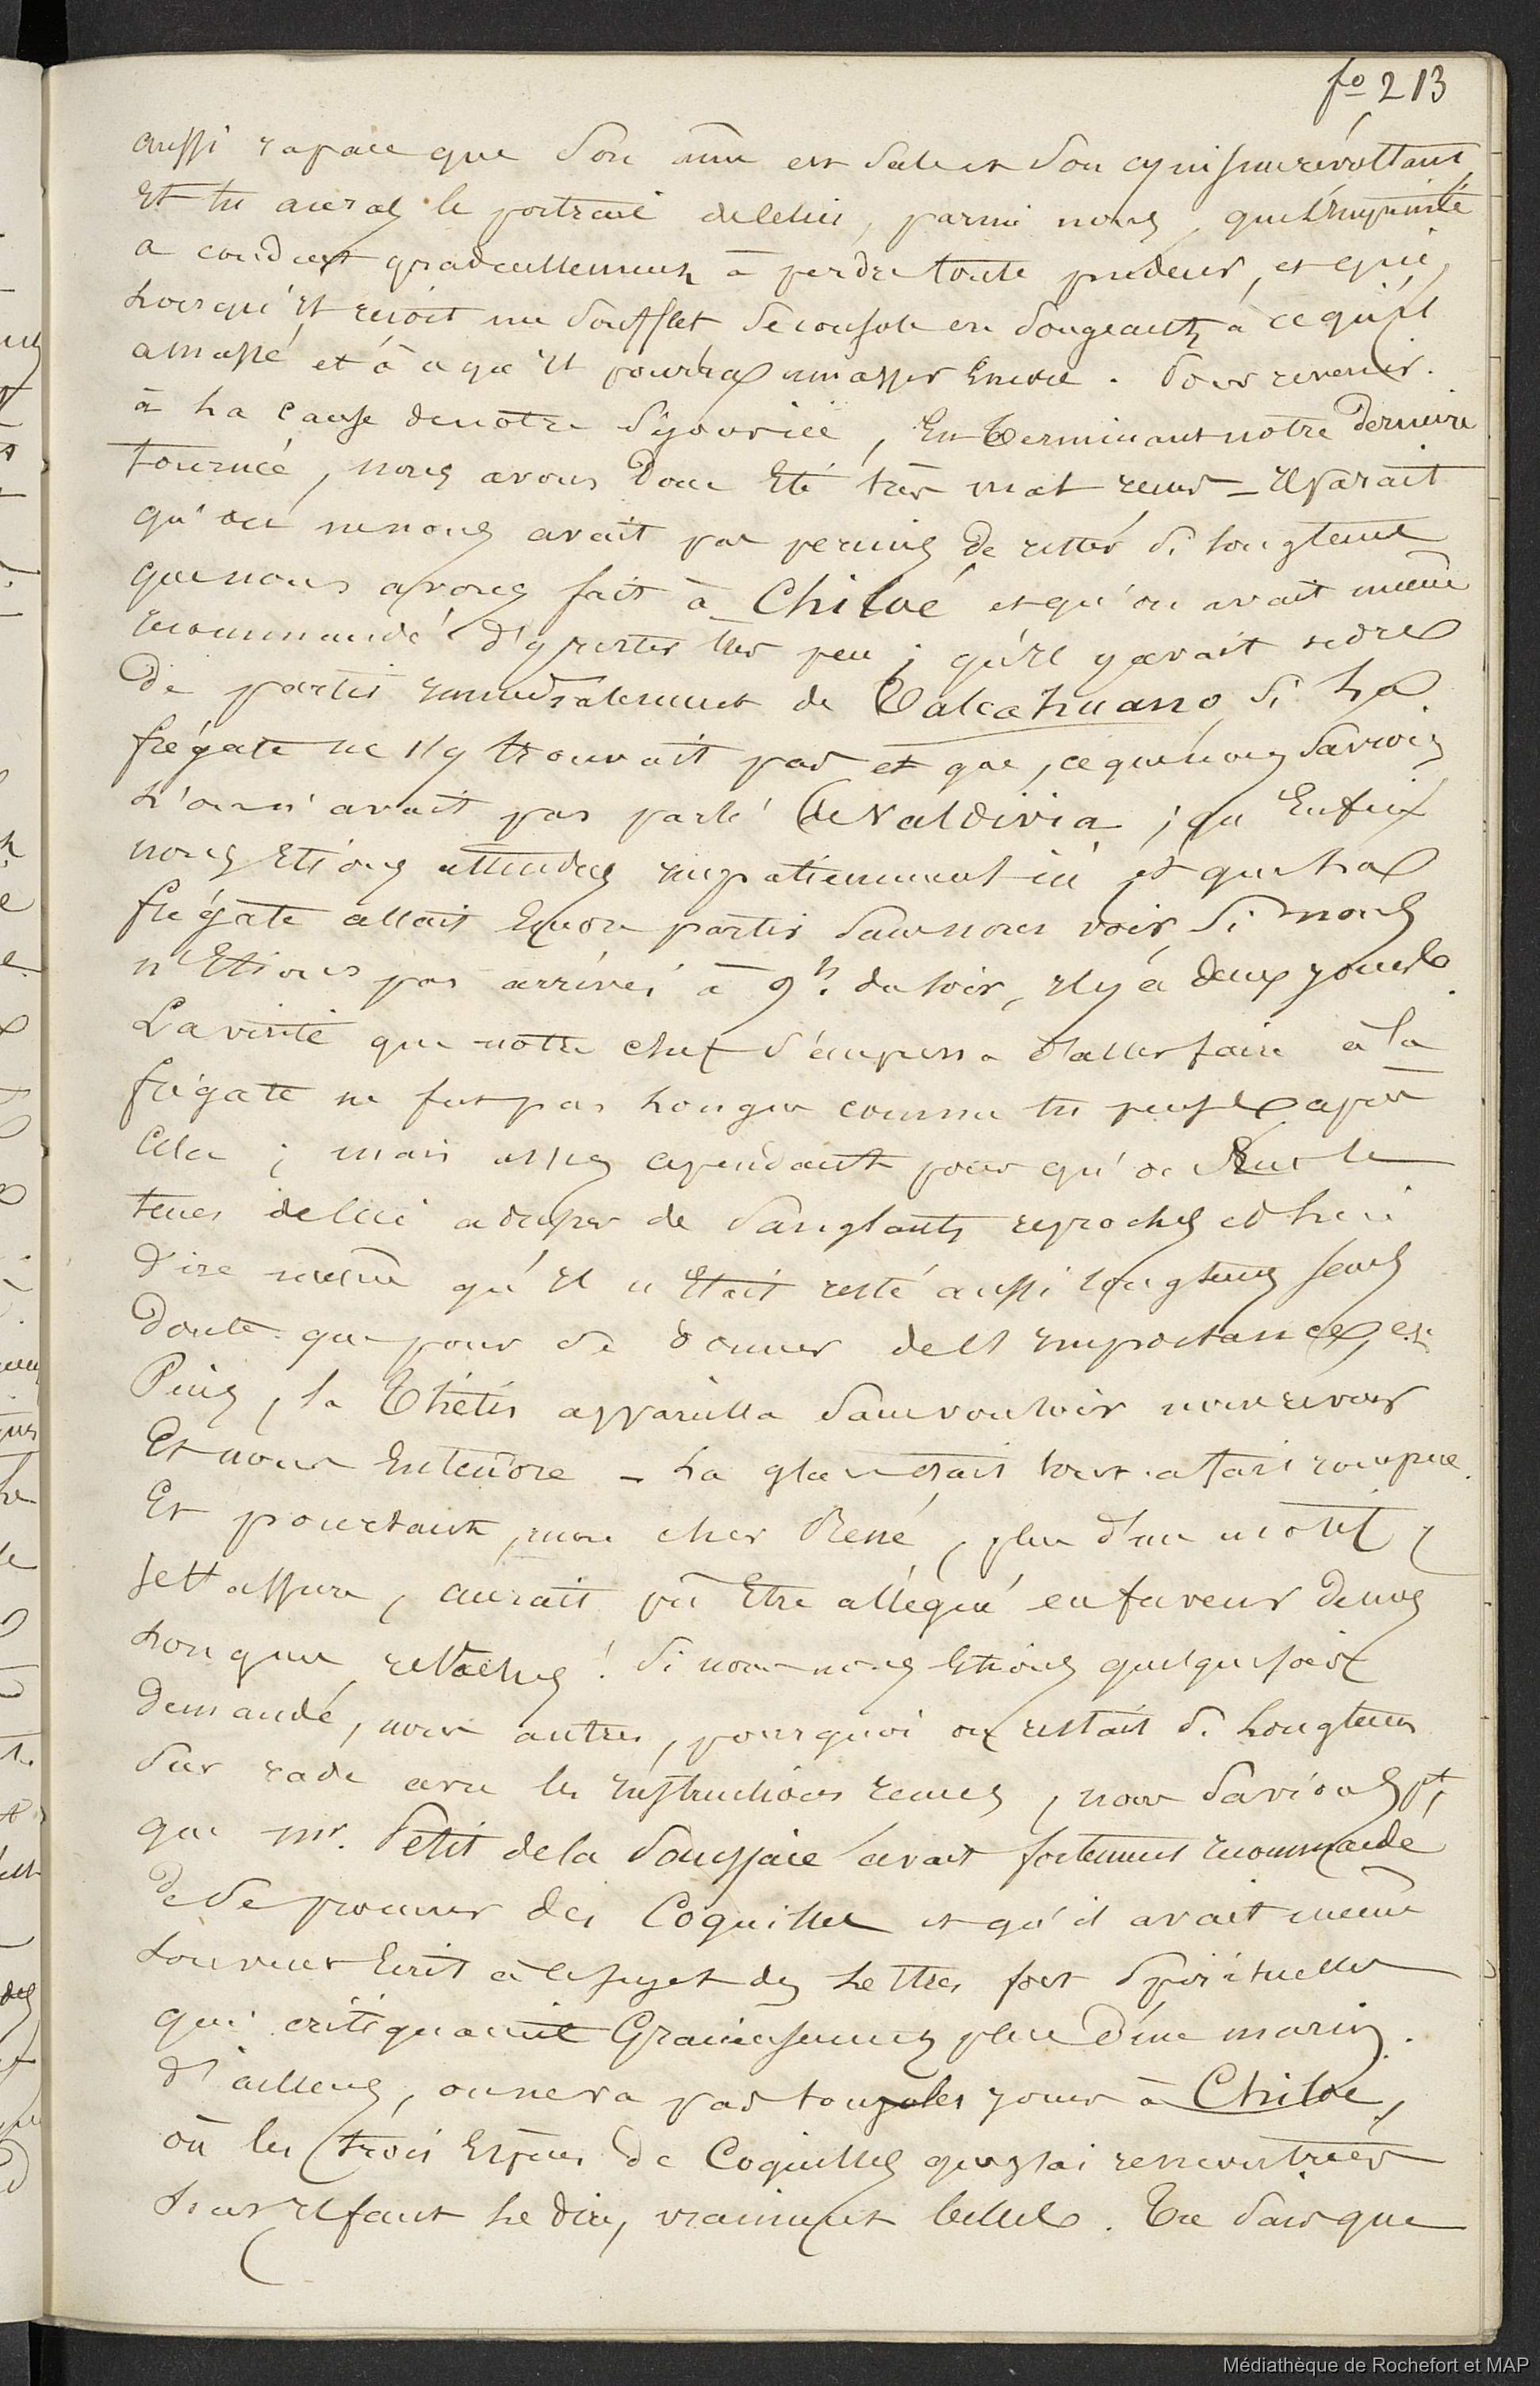 fo 213
aussi rapace que son âme est sale et son cynisme révoltant
Et tu auras le portrait de celui, parmi nous, que l'impunité
a conduit graduellement à perdre toute pudeur, et qui,
lorsqu'il reçoit un soufflet se console en songeant à ce qu'il
amassé et à ce qu'il pourra amasser Encore. Pour revenir
à la cause de notre , En terminant notre dernière
tournée, nous avons donc Eté très mal reçus – Il parait
qu'on ne nous avait pas permis de rester si longtems
que nous avons fait à Chiloé et qu'on avait même
recommandé d'y rester très peu ; qu'il y avait ordre
De partir immédiatement de Talcahuano si la
frégate ne s'y trouvait pas et que, ce que nous savions
l'on n'avait pas parlé de Valdivia ; qu'Enfin
nous Etions attendus impatiemment ici et que la
frégate allait Encore partir sans nous voir si nous
n'Etions pas arrivés à 9h. du soir, il y a deux jours.
La visite que notre chef s'empressa d'aller faire à la
frégate ne fut pas longue comme tu penses après
Cela ; mais assez cependant pour qu'on Eut le
tems de lui adresser de sanglants reproches et lui
dire même qu'il n'Etait resté aussi longtems sans
Doute que pour se donner de l'importance, et
Puis, la Thétis appareilla sans vouloir nous revoir
Et nous Entendre – La glace était tout à fait rompue.
Et pourtant, mon cher René, plus d'un motif,
je t'assure, aurait pû Etre allégué en faveur de nos
longues relâches ! Si nous nous étions quelquefois
Demandé, nous autres, pourquoi on restait si longtems
sur rade avec les instructions reçues, nous savions pt
que mr. Petit de la Saussaie avait fortement recommandé
de se procurer des Coquilles et qu'il avait même
souvent Ecrit à ce sujet des lettres fort spirituelles
qui critiquaient Gracieusement plus d'un marin.
D'ailleurs, on ne va pas tous les jours à Chiloé,
où les trois Espèces de Coquilles que j'ai rencontrées
Sont il faut le dire, vraiment belles. Tu sais que
Médiathèque de Rochefort et MAP